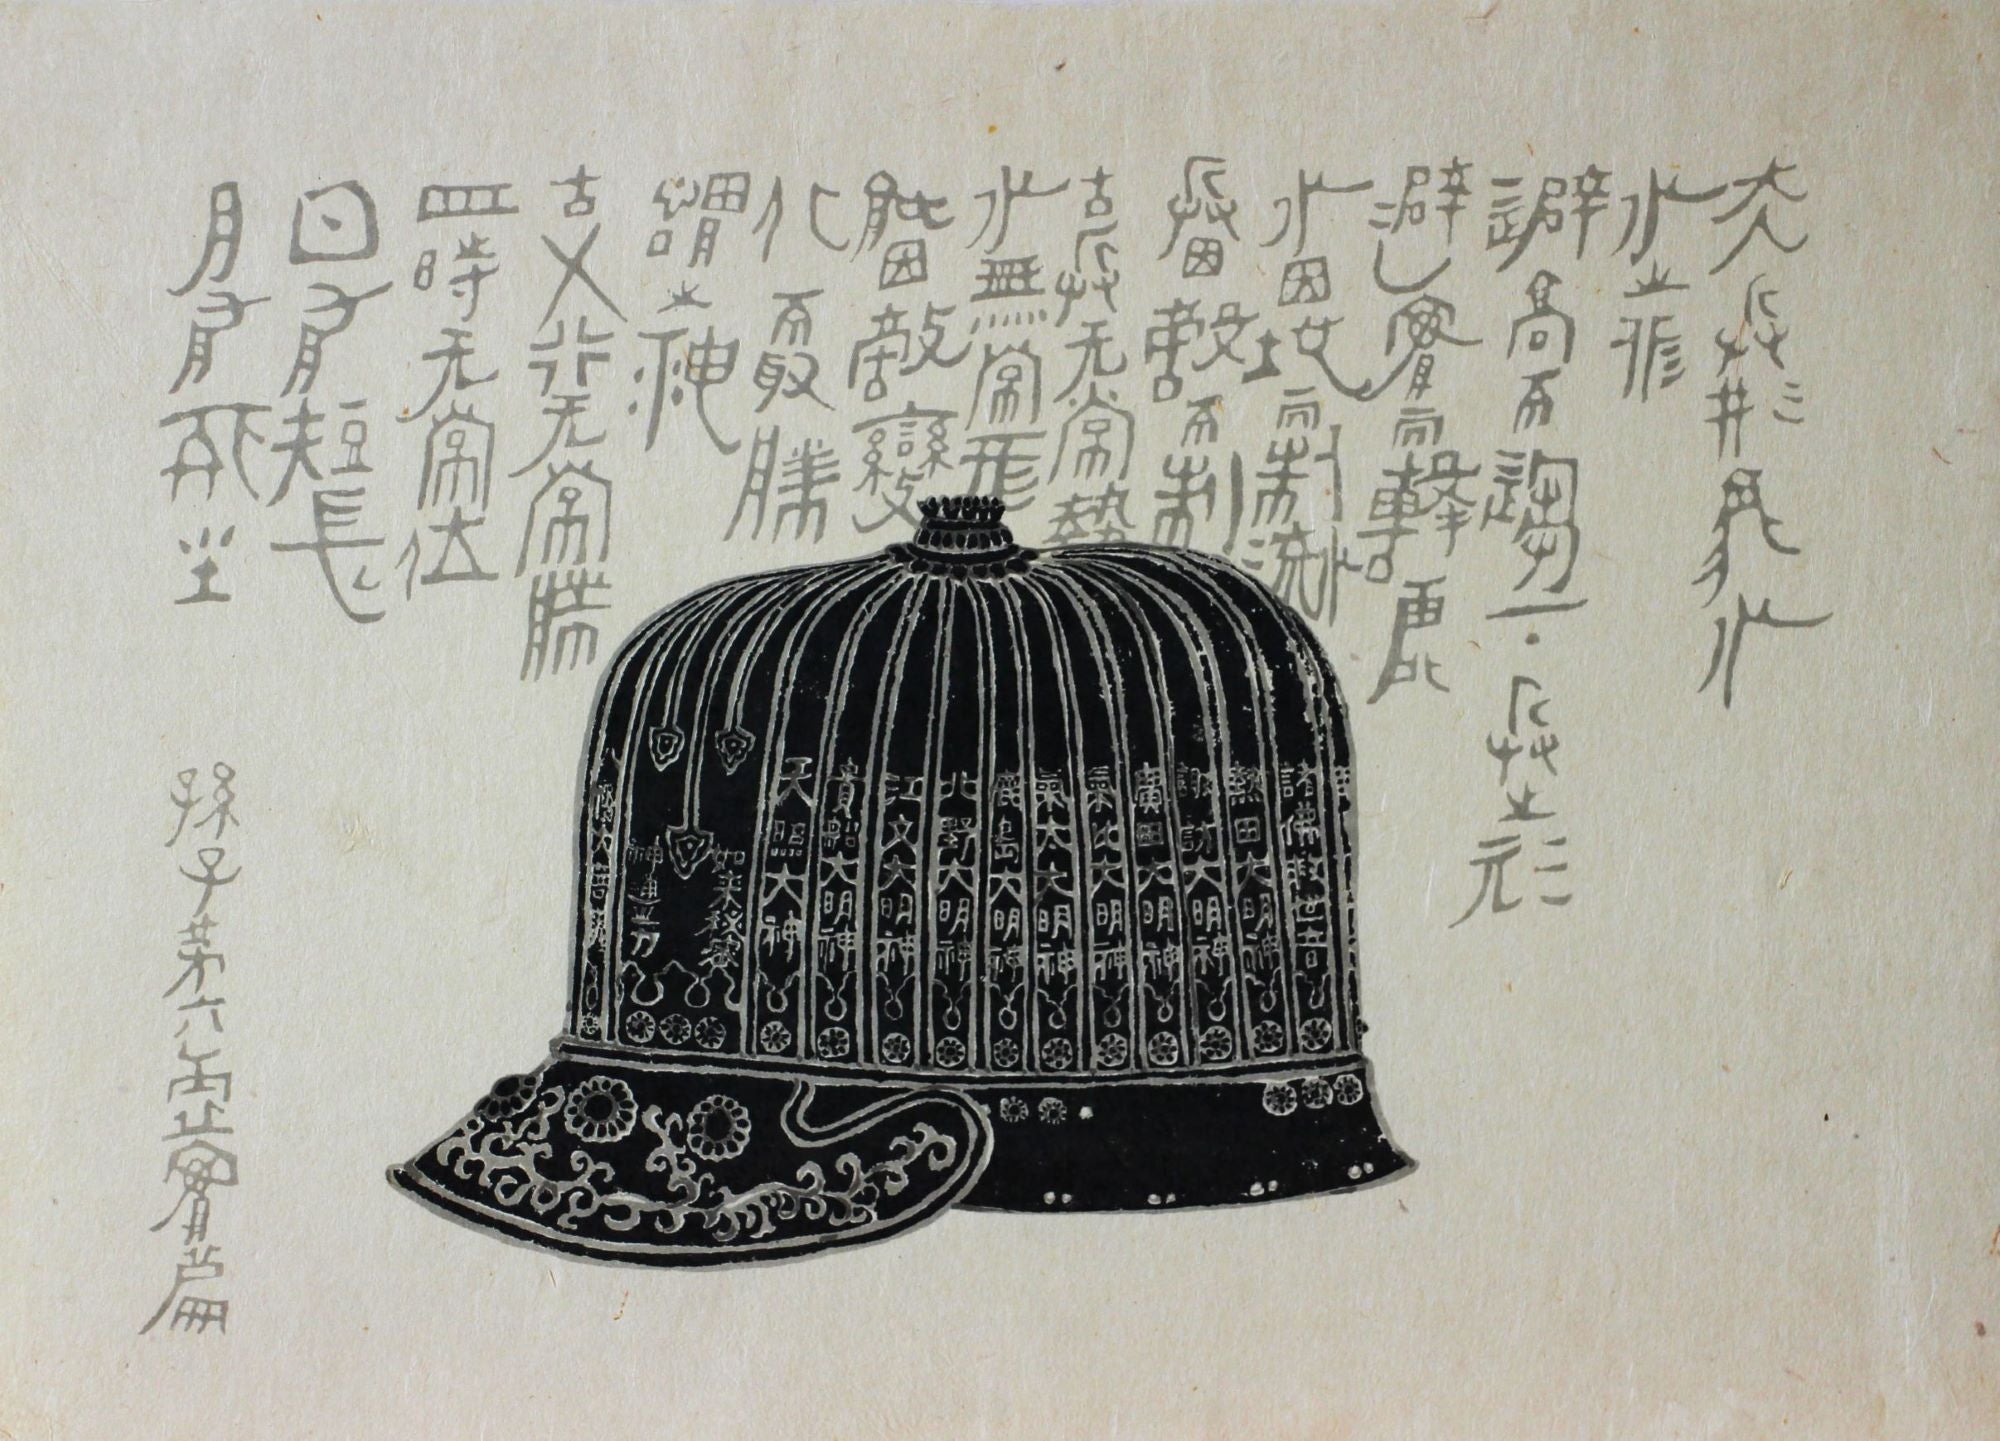 夫兵形象水
水之形
避高而趨下・兵之形
避實而擊虛
水因地而制流
兵因敵而制
古兵无常勢
水無常形
能因敵變
化而取勝
謂之神
古五行无常勝
四時无常位
日有短長
月有死生
孫子第六虛實篇
諸佛救世者
熱田大明神
諏訪大明神
廣田大明神
氣比大明神
氣太大明神
鹿島大明神
北野大明神
江文大明神
貴船大明神
天照大神
如来秘密
神通之力